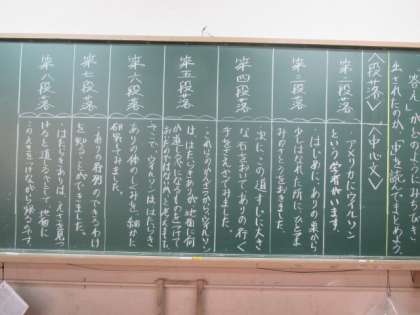 答えがどのようにみちびき
出されたのか、中を読んでまとめよう。
〈段落〉〈中心文〉
第二段落
・アメリカにウイルソン
という学者がいます。
第三段落
・はじめに、ありの巣から
少しはなれた所に、ひとつまみのさとうをおきました。
第四段落
・次に、この道すじに大き
な石をおいて、ありの行く
手をさえぎってみました。
第五段落
・これらのかんさつから、ウイルソン
は、はたらきありが、地面に何
か道しるべになるものをつけて
おいたのではないか、と考えました。
第六段落
・そこで、ウイルソンは、はたらき
ありの体のしくみを、細かに
研究してみました。
第七段落
・ありの行列のできるわけ
を知ることができました。
第八段落
・はたらきありは、えさを見つ
けると、道しるべとして、地面に
このえきをつけながら帰るのです。